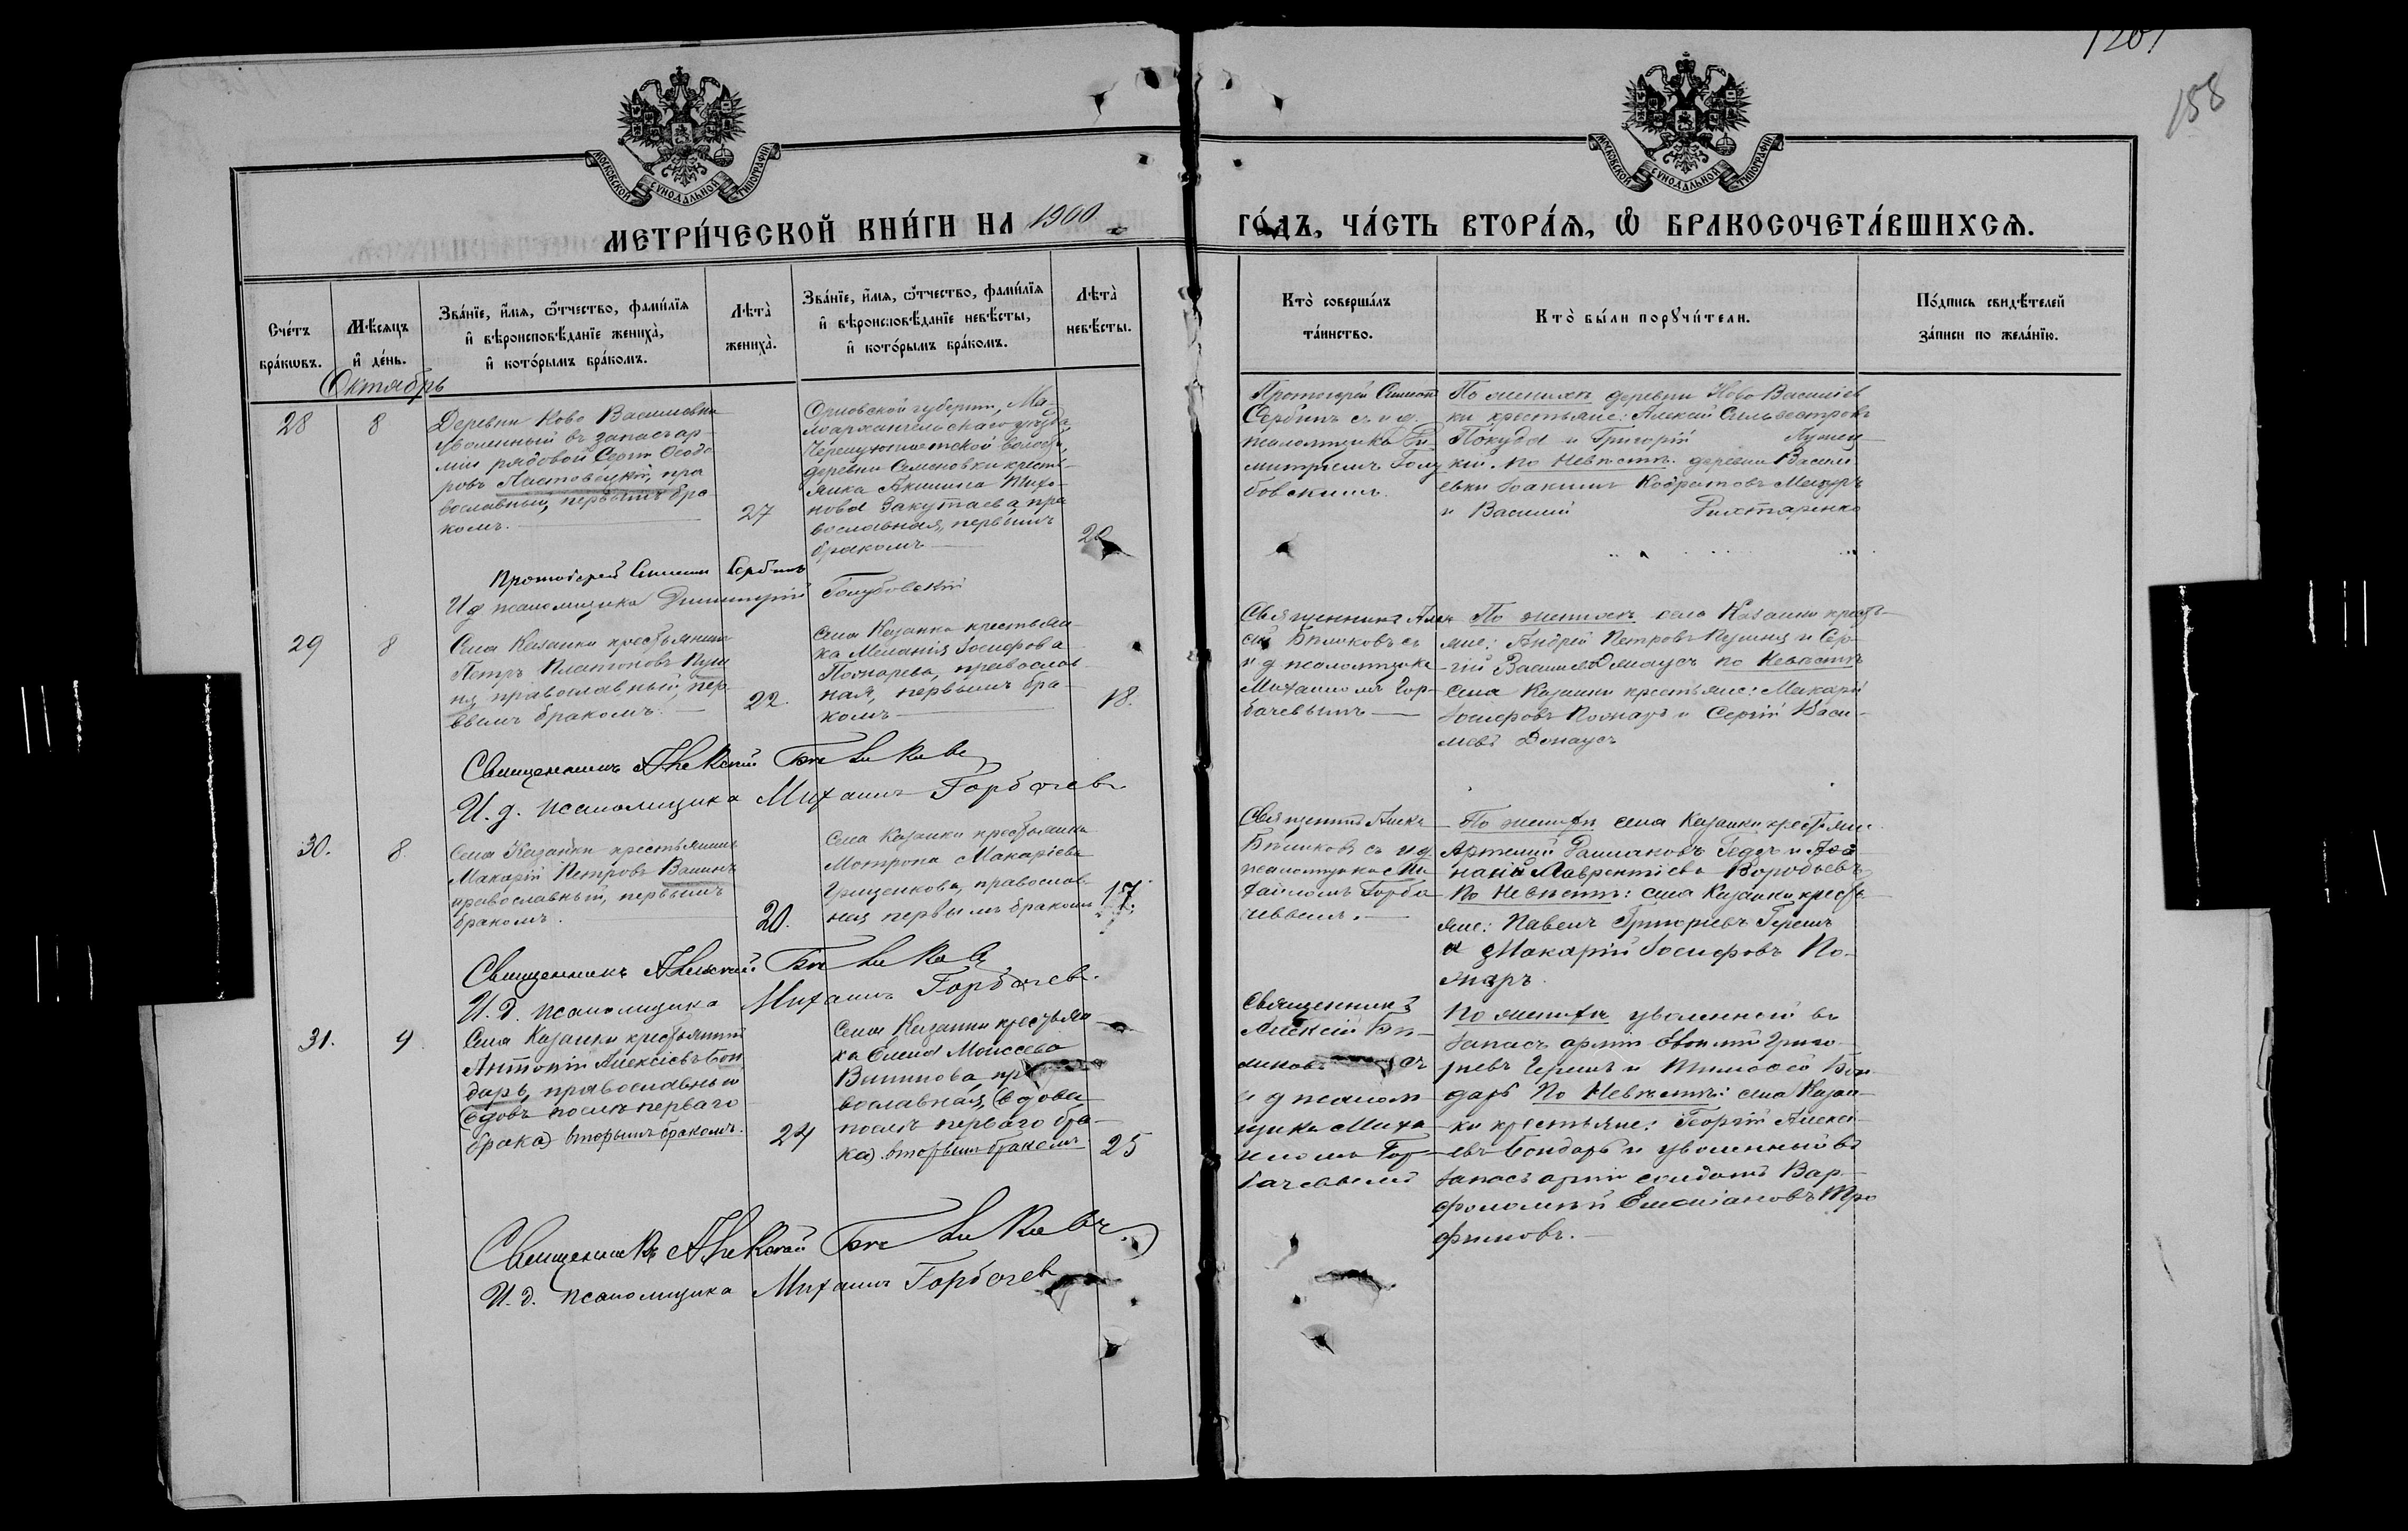 1201
158
МОСКОВСКОЙ СѴНОДАЛЬНОЙ ТИПОГРАФІИ
МОСКОВСКОЙ СѴНОДАЛЬНОЙ ТИПОГРАФІИ
МЕТРИ́ЧЕСКОЙ КНИ́ГИ НА 1900
ГО́ДЪ, ЧА́СТЬ ВТОРА́Ѧ, Ѡ҆ БРАКОСОЧЕТА́ВШИХСѦ.
Сче́тъ
бра́кѡвъ.
Мѣ́сѧцъ
и҆ де́нь.
Зва́нїе, и҆́мѧ, ѻ҆́тчество, фами́лїѧ
и҆ вѣроисповѣ́данїе жениха̀,
и҆ кото́рымъ бра́комъ.
Лѣта̀
жениха̀.
Зва́нїе, и҆́мѧ, ѻ҆́тчество, фами́лїѧ
и҆ вѣроисповѣ́данїе невѣ́сты,
и҆ кото́рымъ бра́комъ.
Лѣта̀
невѣ́сты.
Кто̀ соверша́лъ
та́инство.
Кто̀ бы́ли порꙋчи́тели.
По́дпись свидѣ́телей
за́писи по жела́нїю.
Октябрь
28
8
Деревни Ново Василіевки
уволенный въ запасъ ар-
міи рядовой Сеоти Ѳеодо
ровъ Листовецкій, пра
вославный, первымъ бра-
комъ.
27
Орловской губерніи, Ма-
лоархангельскаго уѣзда
волости,
деревни Семеновки кресть-
янка Акилина Тихо-
нова Закутаева, пра
вославная, первымъ
бракомъ
Протоіерей Симеонъ
Сербинъ съ и. д.
псаломщика Ди-
митріемъ Голу
бовскимъ.
По женихѣ деревни Ново Василіев
ки крестьяне: Алексѣй Сильвестровъ
Покуда и Григорій
кій. По невѣстѣ деревни Васили-
евки Іоакимъ Мазуръ
и Василій Дихтаренко
Протоіерей Симеонъ Сербинъ
И д псаломщика Димитрій Голубовскій
29
8
Села Казанки крестьянинъ
Петръ Платоновъ Пуш
ня, православный, пер
вымъ бракомъ.
22.
Села Казанки крестьян-
ка Меланія Іосифова
Понарева, православ
ная, первымъ бра-
комъ
18.
Священникъ Алек
сѣй Бѣликовъ съ
и д псаломщика
Михаиломъ Гор-
бачевымъ
По женихѣ села Казанки кресть-
яне: Андрей Петровъ Пушня и Сер-
гій Василіевъ По невѣстѣ
села Казанки крестьяне: Макарій
Іосифовъ Понаръ и Сергій Васи-
ліевъ
Священникъ Алексѣй Бѣликовъ
И. д. псаломщика Михаилъ Горбачевъ
30.
8.
Села Казанки крестьянинъ
Макарій Петровъ Вашнъ
православный, первымъ
бракомъ.
20.
Села Казанки крестьянка
Мотрона Макаріева
Грищенкова, православ-
ная первымъ бракомъ
17.
Священникъ Алексѣй
Бѣликовъ съ и д
псаломщика Ми
хаиломъ Горба
чевымъ.
По женихѣ села Казанки крестьяне
Артемій и Аѳа
насій Лаврентіевъ Воробьевъ
По невѣстѣ: села Казанки кресть
яне: Павелъ Григорьевъ
и Макарій Іосифовъ По-
наръ.
Священникъ Алексѣй Бѣликовъ
И. д. псаломщика Михаилъ Горбачевъ.
31.
9
Села Казанки крестьянинъ
Антоній Алексіевъ Бон
даръ, православный
(вдовъ послѣ перваго
брака) вторымъ бракомъ.
24
Села Казанки крестьян
ка Елена Моисеева
пра
вославная, (вдова
послѣ перваго бра-
ка) вторымъ бракомъ
25
Священникъ
Алексій Бѣ-
ликовъ съ
и д псалом
щика Миха
иломъ Гор-
бачевымъ
По женихѣ уволенной въ
запасъ арміи Евѳимій Григо-
рьевъ и Тимоѳей Бон
даръ По невѣстѣ: села Казан-
ки крестьяне: Георгій Алексі-
евъ Бондаръ и уволенный въ
запасъ арміи солдатъ Вар-
ѳоломей Емеліановъ Тро
фимовъ.
Священникъ Алексѣй Бѣликовъ.
И. д. псаломщика Михаилъ Горбачевъ